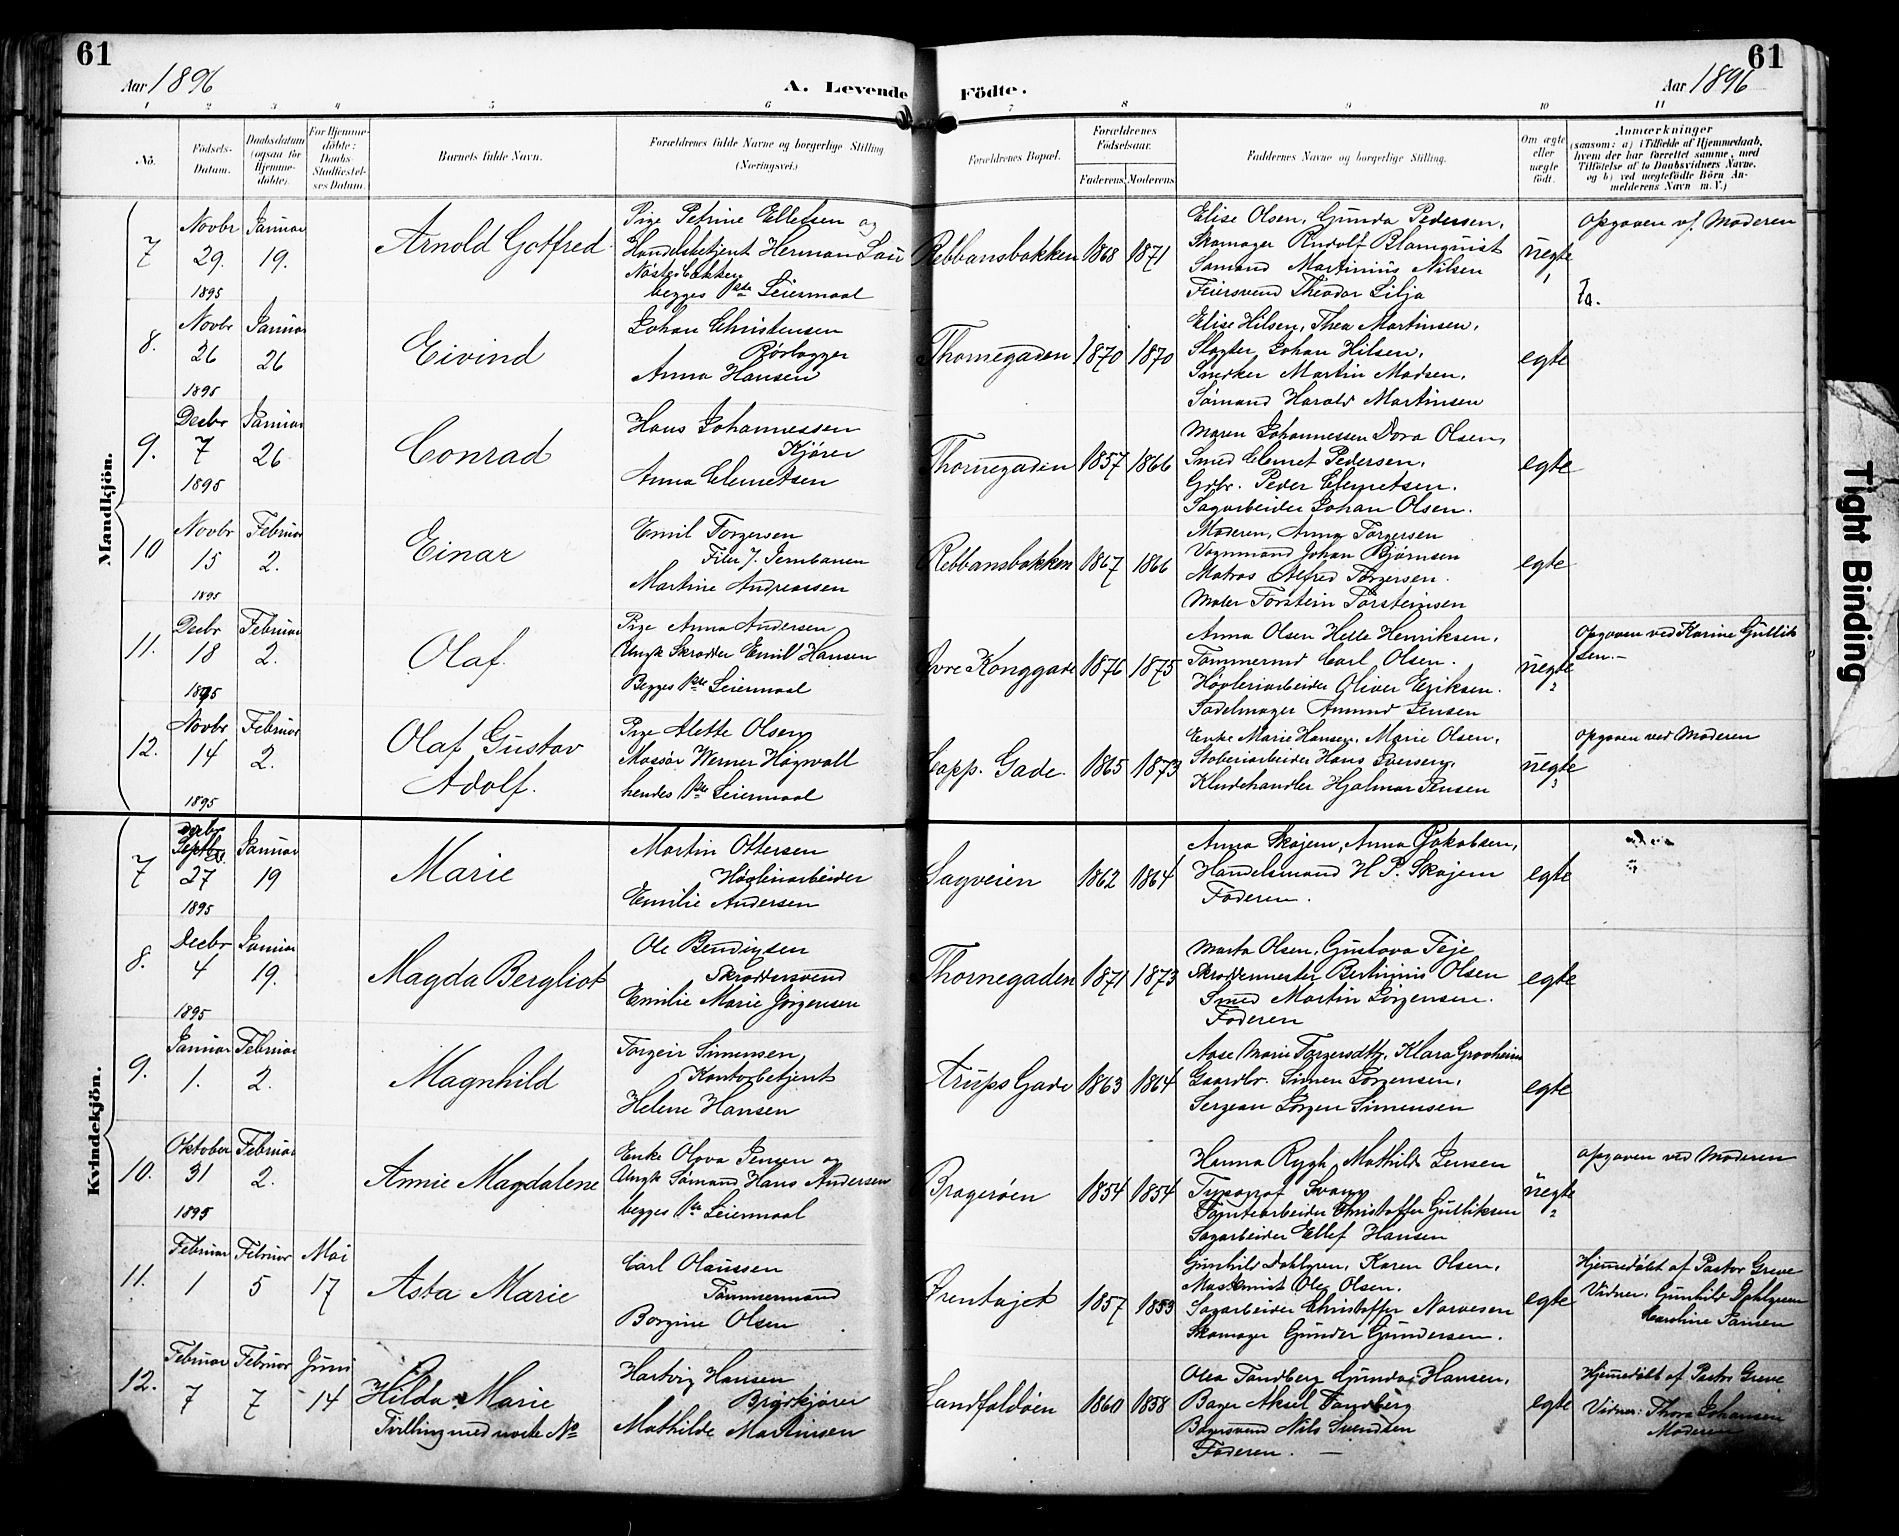 61
Aar 1896
A. Levende
1 2 3 4 5 6
No.
Födsels-
Datum.
Daabsdatum
(ogsaa for
Hjemme-
döbte).
For Hjemme-
döbte:
Daabs-
Stadfæstel-
ses Datum.
Barnets fulde Navn.
Forældrenes fulde Navne og borgerlige Stilling
(Næringsvei.)
Mandkjön.
7
Novbr
29.
1895
Januar
19.
Arnold Gotfred
Pige Petrine Ellefsen og
Handelsbetjent Herman Lau
begges 1ste Leiermaal
8.
Novbr
26
1895
Januar
26
Eivind
Johan Christensen
Rörlægger
Anna Hansen
9.
Decbr
7
1895
Januar
26
Conrad
Hans Johannessen
Kjörer
Anna Clemetsen
10
Novbr
15
1895
Februar
2.
Einar
Emil Torgersen
Filer v. Jernbanen
Martine Andreassen
11.
Decbr
18
1895
Februar
2.
Olaf.
Pige Anna Andersen
Ungk Skrædder Emil Hansen
Begges 1ste Leiermaal
12.
Novbr
14
1895
Februar
2.
Olaf Gustav
Adolf.
Pige Alette Olsen
Massör Werner Högwall
hendes 1ste Leiermaal
Kvindekjön.
7
27
1895
Januar
19
Marie
Martin Ottersen
Høvleriarbeider
Emilie Andersen
8.
Decbr
4
1895
Januar
19.
Magda Bergliot
Ole Bendixsen
Skræddersvend
Emilie Marie Jørgensen
9.
Januar
1.
Februar
2.
Magnhild
Torgeir Simensen
Kontorbetjent
Helene Hansen
10.
Oktober
31
1895
Februar
2.
Annie Magdalene
Enke Olava Jensen og
Ungk Sømand Hans Andersen
begges 1ste Leiermaal
11.
Februar
1
Februar
5
Mai
17
Asta Marie
Carl Olaussen
Tømmermand
Borgine Olsen
12.
Februar
7
Februar
7
Juni
14
Hilda Marie
Tvilling med næste No
Hartvig Hansen
Brygkjører
Mathilde Martinsen
61
Aar 1896
Födte.
7 8 9 10 11
Forældrenes Bopæl.
Forældrenes
Födselsaar.
Faderens. Moderens.
Faddernes Navne og borgerlige Stilling.
Om ægte
eller
uægte
födt.
Anmærkninger
(saasom: a) i Tilfælde af Hjemmedaab,
hvem der har forrettet samme, med
Tilföielse af to Daabsvidners Navne,
og b) ved uægtefödte Börn An-
melderens Navn m. V.)
Rebbansbakken 1868 1871
Elise Olsen, Gunda Pedersen,
Skomager Rudolf Blomqvist
Sømand Martinius Nilsen
Feiersvend Theodor Lilja
uegte
opgaven v/ Moderen
Thornegaden 1870 1870
Elise Hilsen, Thea Martinsen,
Slagter Johan Hilsen,
Snedker Martin Madsen,
Sømand Harald Martinsen
egte
Thornegaden 1857 1866
Maren Johannessen Dora Olsen,
Smed Clemet Pedersen,
Gdbr. Peder Clemetsen.
Sagarbeider Johan Olsen.
egte
Rebbansbakken 1867 1866
Moderen, Anna Torgersen
Vognmand Johan Bjørnsen
Matros Alfred Torgersen.
Maler Torstein Torsteinsen
egte
Øvre Konggade 1876 1875
Anna Olsen Helle Henriksen,
Tømmermd Carl Olsen.
Høvleriarbeider Oliver Eriksen.
Sadelmager Anund Jensen
uegte
opgaven ved Karine Gullik
sen.-
Capp. Gade. 1865 1873
Enke Marie Hansen, Marie Olsen,
Støberiarbeider Hans
Kludehandler Hjalmar Jensen
uegte
opgaven ved Moderen
Sagveien 1862 1864
Anna Skajem, Anna Jakobsen,
Handelsmand H P. Skajem
Faderen.
egte
Thornegaden 1871 1873
Marta Olsen, Gustava Teje
Skræddermester Bertinius Olsen
Smed Martin Jørgensen.
Faderen
egte
Strups Gade 1863 1864
Aase Marie Torgersdtr, Klara Grovheim
Gaardbr. Simen Jørgensen,
Sergean Jørgen Simensen
egte
Bragerøen 1854 1854
Hanna Rygh, Mathilde Jensen
Typograf Svang
Tomtearbeider Christoffer Gulliksen
Sagarbeider Ellef Hansen
uegte
opgaven ved Moderen
Ørentajet 1857 1853
Gunhild Dahlgren, Karen Olsen,
Maskinist Ole Olsen.
Sagarbeider Christoffer Narvesen
Skomager Gunder Gundersen.
egte
Hjemmedøbt af Pastor Greve
Vidner: Gunhild Dahlgren
Karoline Jansen
Landfaldøen 1860 1858
Olea Tandberg Gunda Hansen,
Bager Aksel Tandberg
Bagersvend Nils Svendsen
Faderen.
egte
Hjemmedøbt af Pastor Greve
Vidner: Thora Johansen
Moderen
Tight Binding